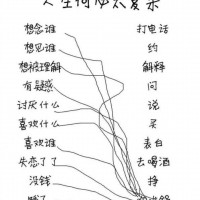 人生何必太复杂
想念谁 打电话
想见谁 约
想被理解 解释
有疑惑 问
讨厌什么 说
喜欢什么 买
喜欢谁 表白
失恋了 去喝酒
没钱 挣
饿了 吃火锅